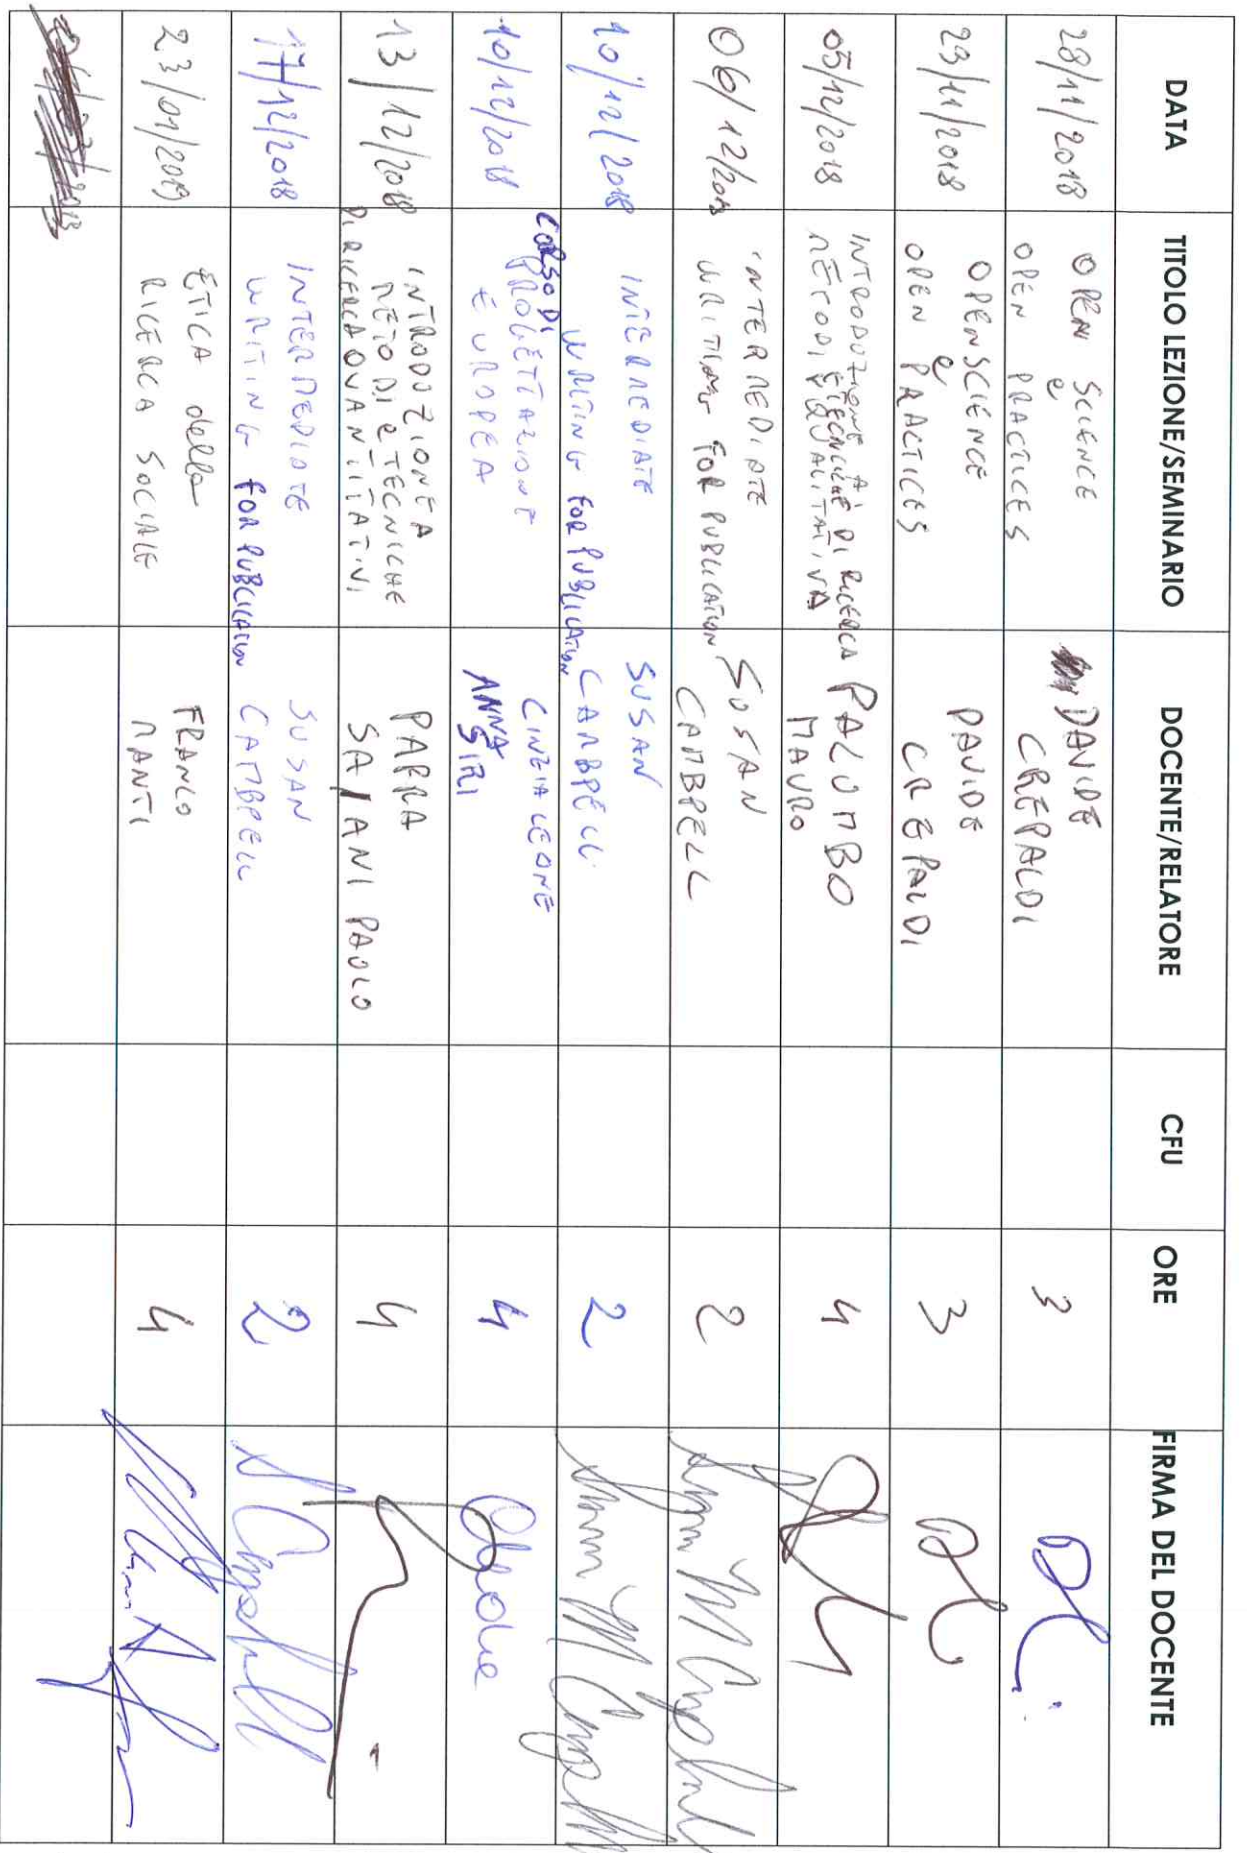 DATA TITOLO LEZIONE/SEMINARIO DOCENTE/RELATORE CFU ORE FIRMA DEL DOCENTE
28/11/2018
OPEN SCIENCE
e
OPEN PRACTICES
DAVIDE
CREPALDI
3
29/11/2018
OPEN SCIENCE
e
OPEN PRACTICES
DAVIDE
CREPALDI
3
05/12/2018
INTRODUZIONE AI
METODI E TECNICHE DI RICERCA
QUALITATIVA
PALUMBO
MAURO
4
06/12/2018
INTERMEDIATE
WRITING FOR PUBLICATION
SUSAN
CAMBPELL
2
10/12/2018
INTERMEDIATE
WRITING FOR PUBLICATION
SUSAN
CAMBPELL
2
10/12/2018
CORSO DI
PROGETTAZIONE
EUROPEA
CINZIA LEONE
ANNA
SIRI
4
13/12/2018
INTRODUZIONE A
METODI E TECNICHE
DI RICERCA QUANTITATIVI
PARRA
SAIANI PAOLO
4
17/12/2018
INTERMEDIATE
WRITING FOR PUBLICATION
SUSAN
CAMBPELL
2
S Campbell
23/01/2019
ETICA della
RICERCA SOCIALE
FRANCO
MANTI
4